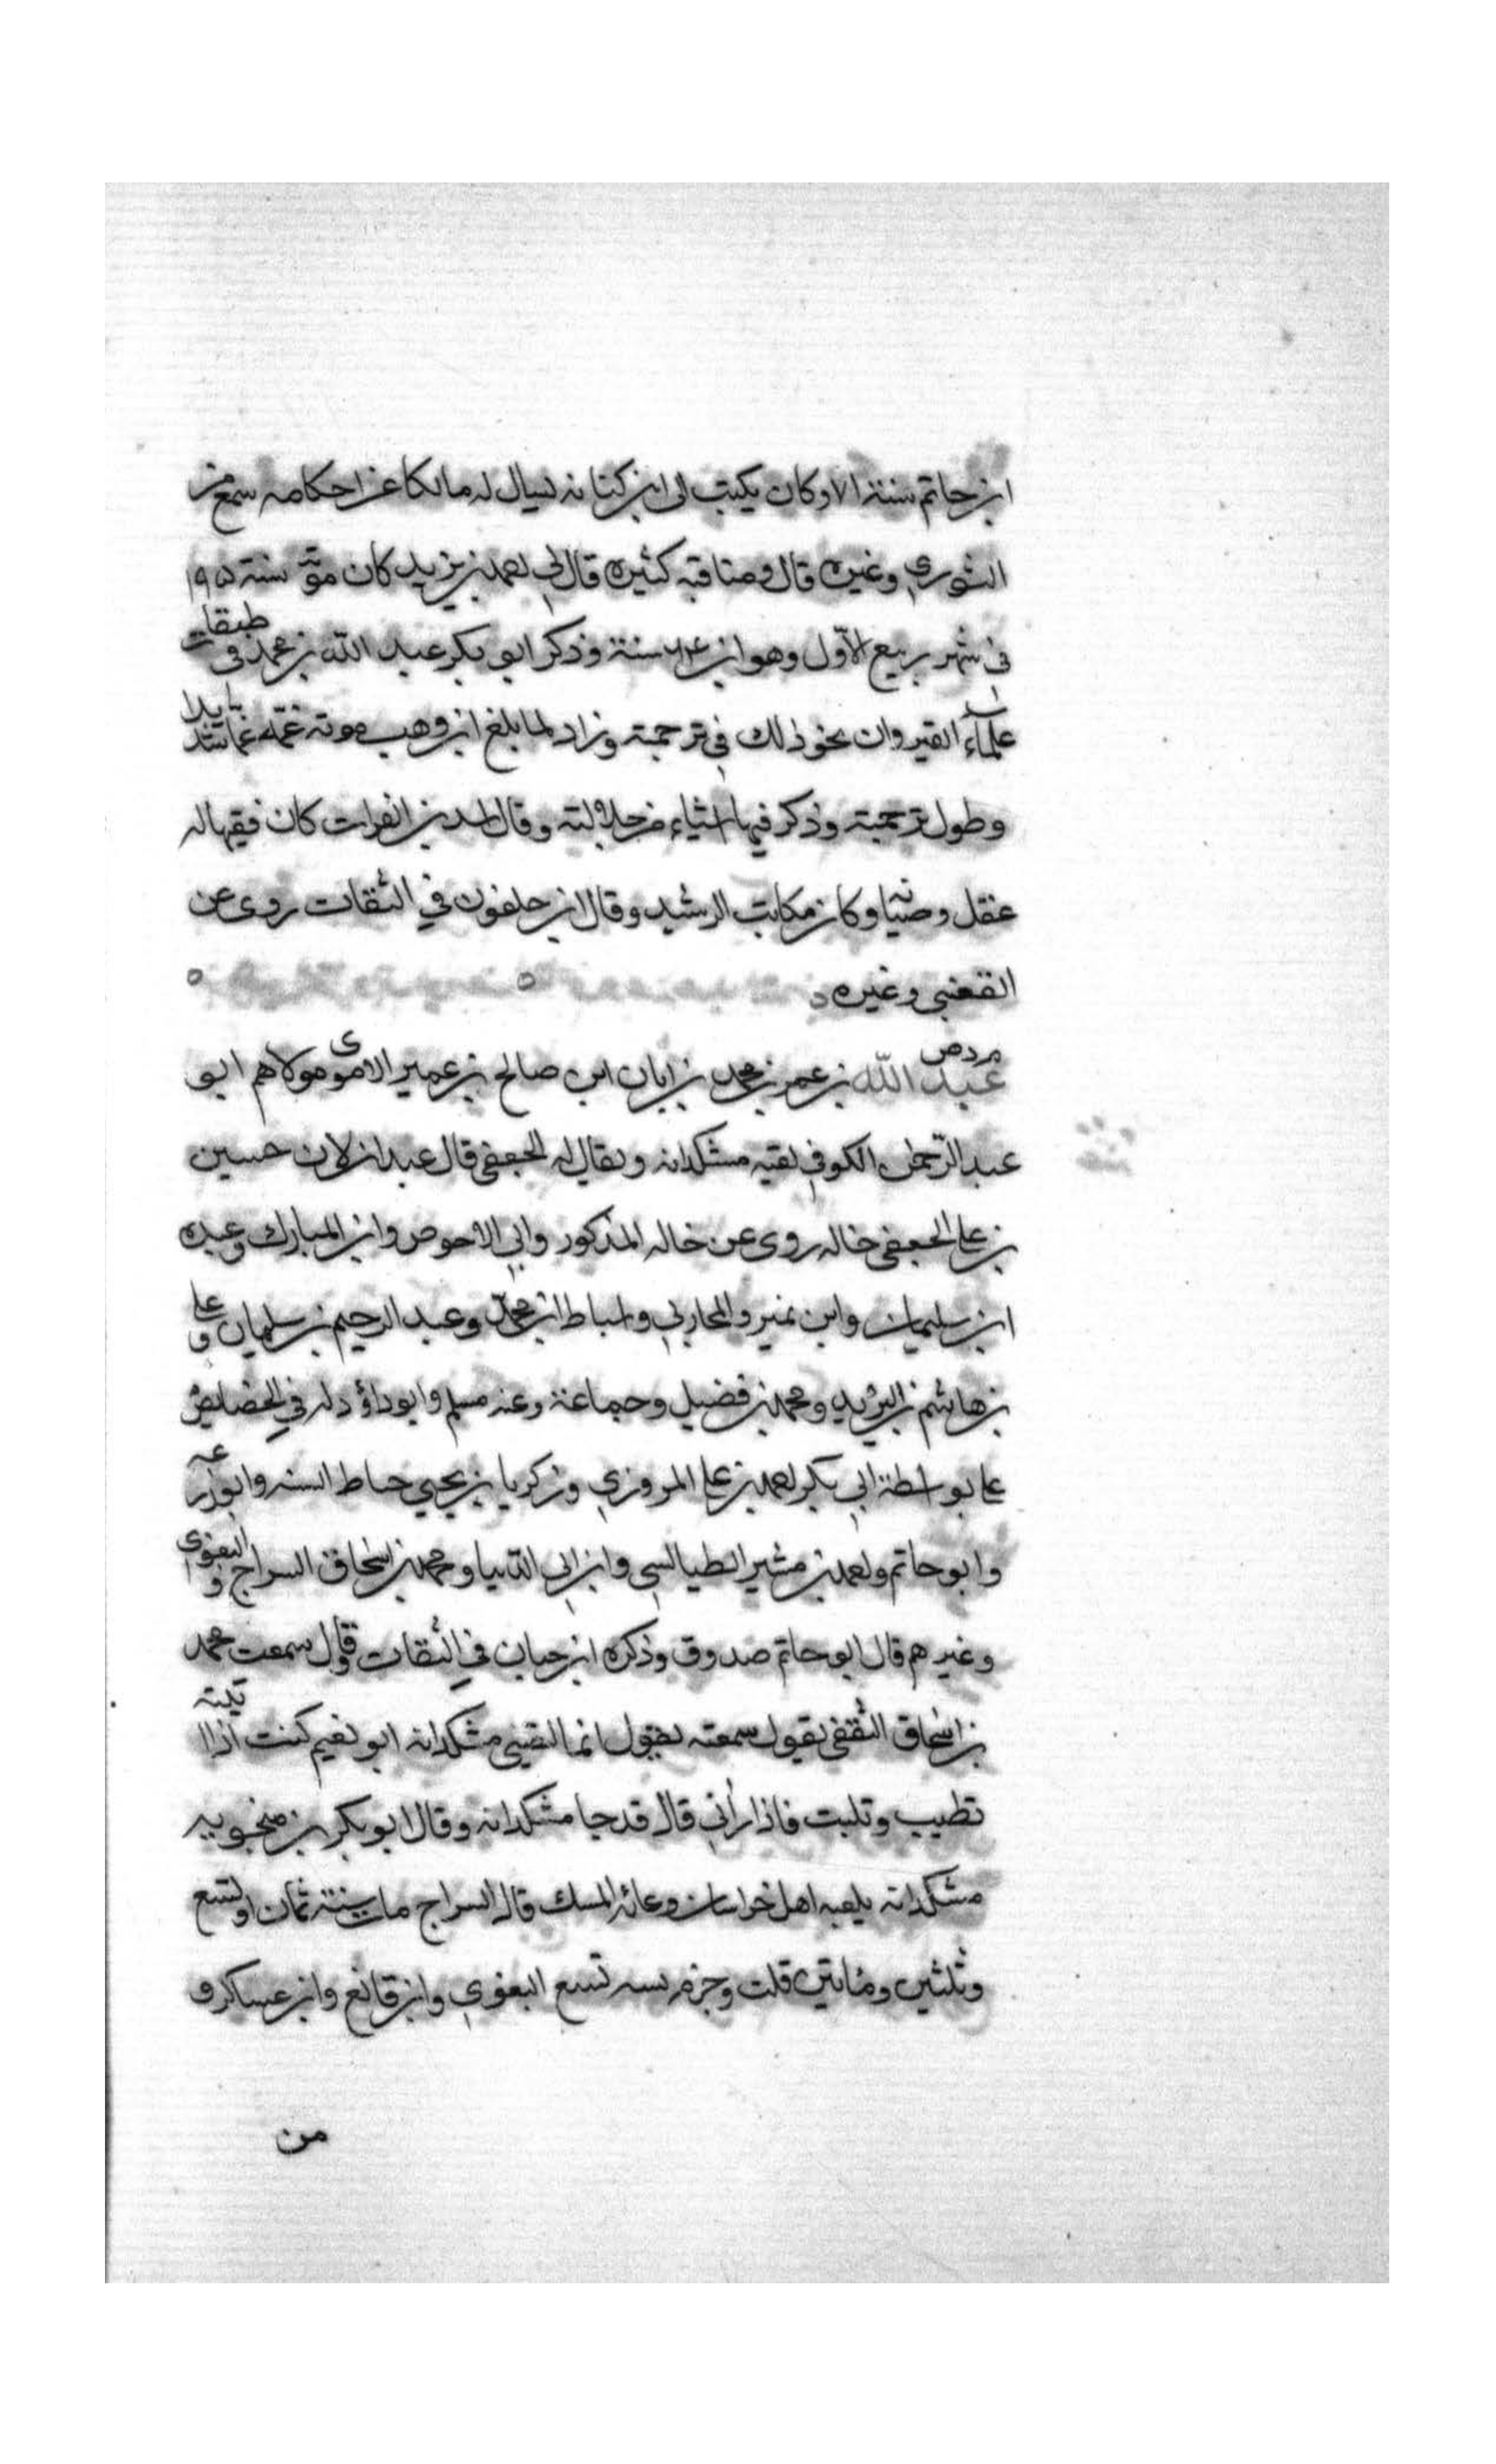 ابن حاتم سنة ١٧١ وكان يكتب الى ابن كنانه يسال له مالكا عن احكامه سمع من
الثوري وغيره قال ومناقبه كثيره قال لي احمد بن يزيد كان موته سنة ١٩٥
في شهر ربيع الأول وهو ابن سنة وذكر ابو بكر عبد الله بن محمد في طبقات
علماء القيروان نحو ذلك في ترجمته وزاد لما بلغ ابن وهب موته غمه غما شديدا
وطول ترجمته وذكر فيها اشياء من جلالته وقال اسد بن الفرات كان فقيها له
عقل وصيانه وكان مكاتب الرشيد وقال ابن خلفون في الثقات روى عن
القعنبي وغيره
م د ص
عبد الله بن عمر بن محمد بن ابان ابن صالح بن عمير الاموى مولاهم ابو
عبد الرحمن الكوفي لقبه مشكدانه ويقال له الجعفي قال عبدان لان حسين
بن علي الجعفي خاله روى عن خاله المذكور وابي الاحوص وابن المبارك وعبده
ابن سليمان وابن نمير والمحاربي واسباط ابن محمد وعبد الرحيم بن سليمان وعلي
بن هاشم بن البريد ومحمد بن فضيل وجماعة وعنه مسلم وابو داؤد له في الخصايص
علي بواسطة ابي بكر احمد بن علي المروزي وزكريا بن يحيي خياط السنه وابو زرعه
وابو حاتم واحمد بن مشير الطيالسي وابن ابي الدنيا ومحمد بن اسحاق السراج والبغوي
وغيرهم قال ابو حاتم صدوق وذكره ابن حبان في الثقات وقال سمعت محمد
بن اسحاق الثقفي يقول سمعته يقول انما لقبني مشكدانه ابو نعيم كنت اذا اتيته
تطيب وتلبت فاذا رأني قال قد جا مشكدانه وقال ابو بكر بن منجويه
مشكدانه بلغه اهل خراسان وعائه المسك قال السراج مات سنة ثمان او تسع
وثلثين ومائتين قلت وجزم بسنه تسع البغوي وابن قانع وابن عساكر و
من